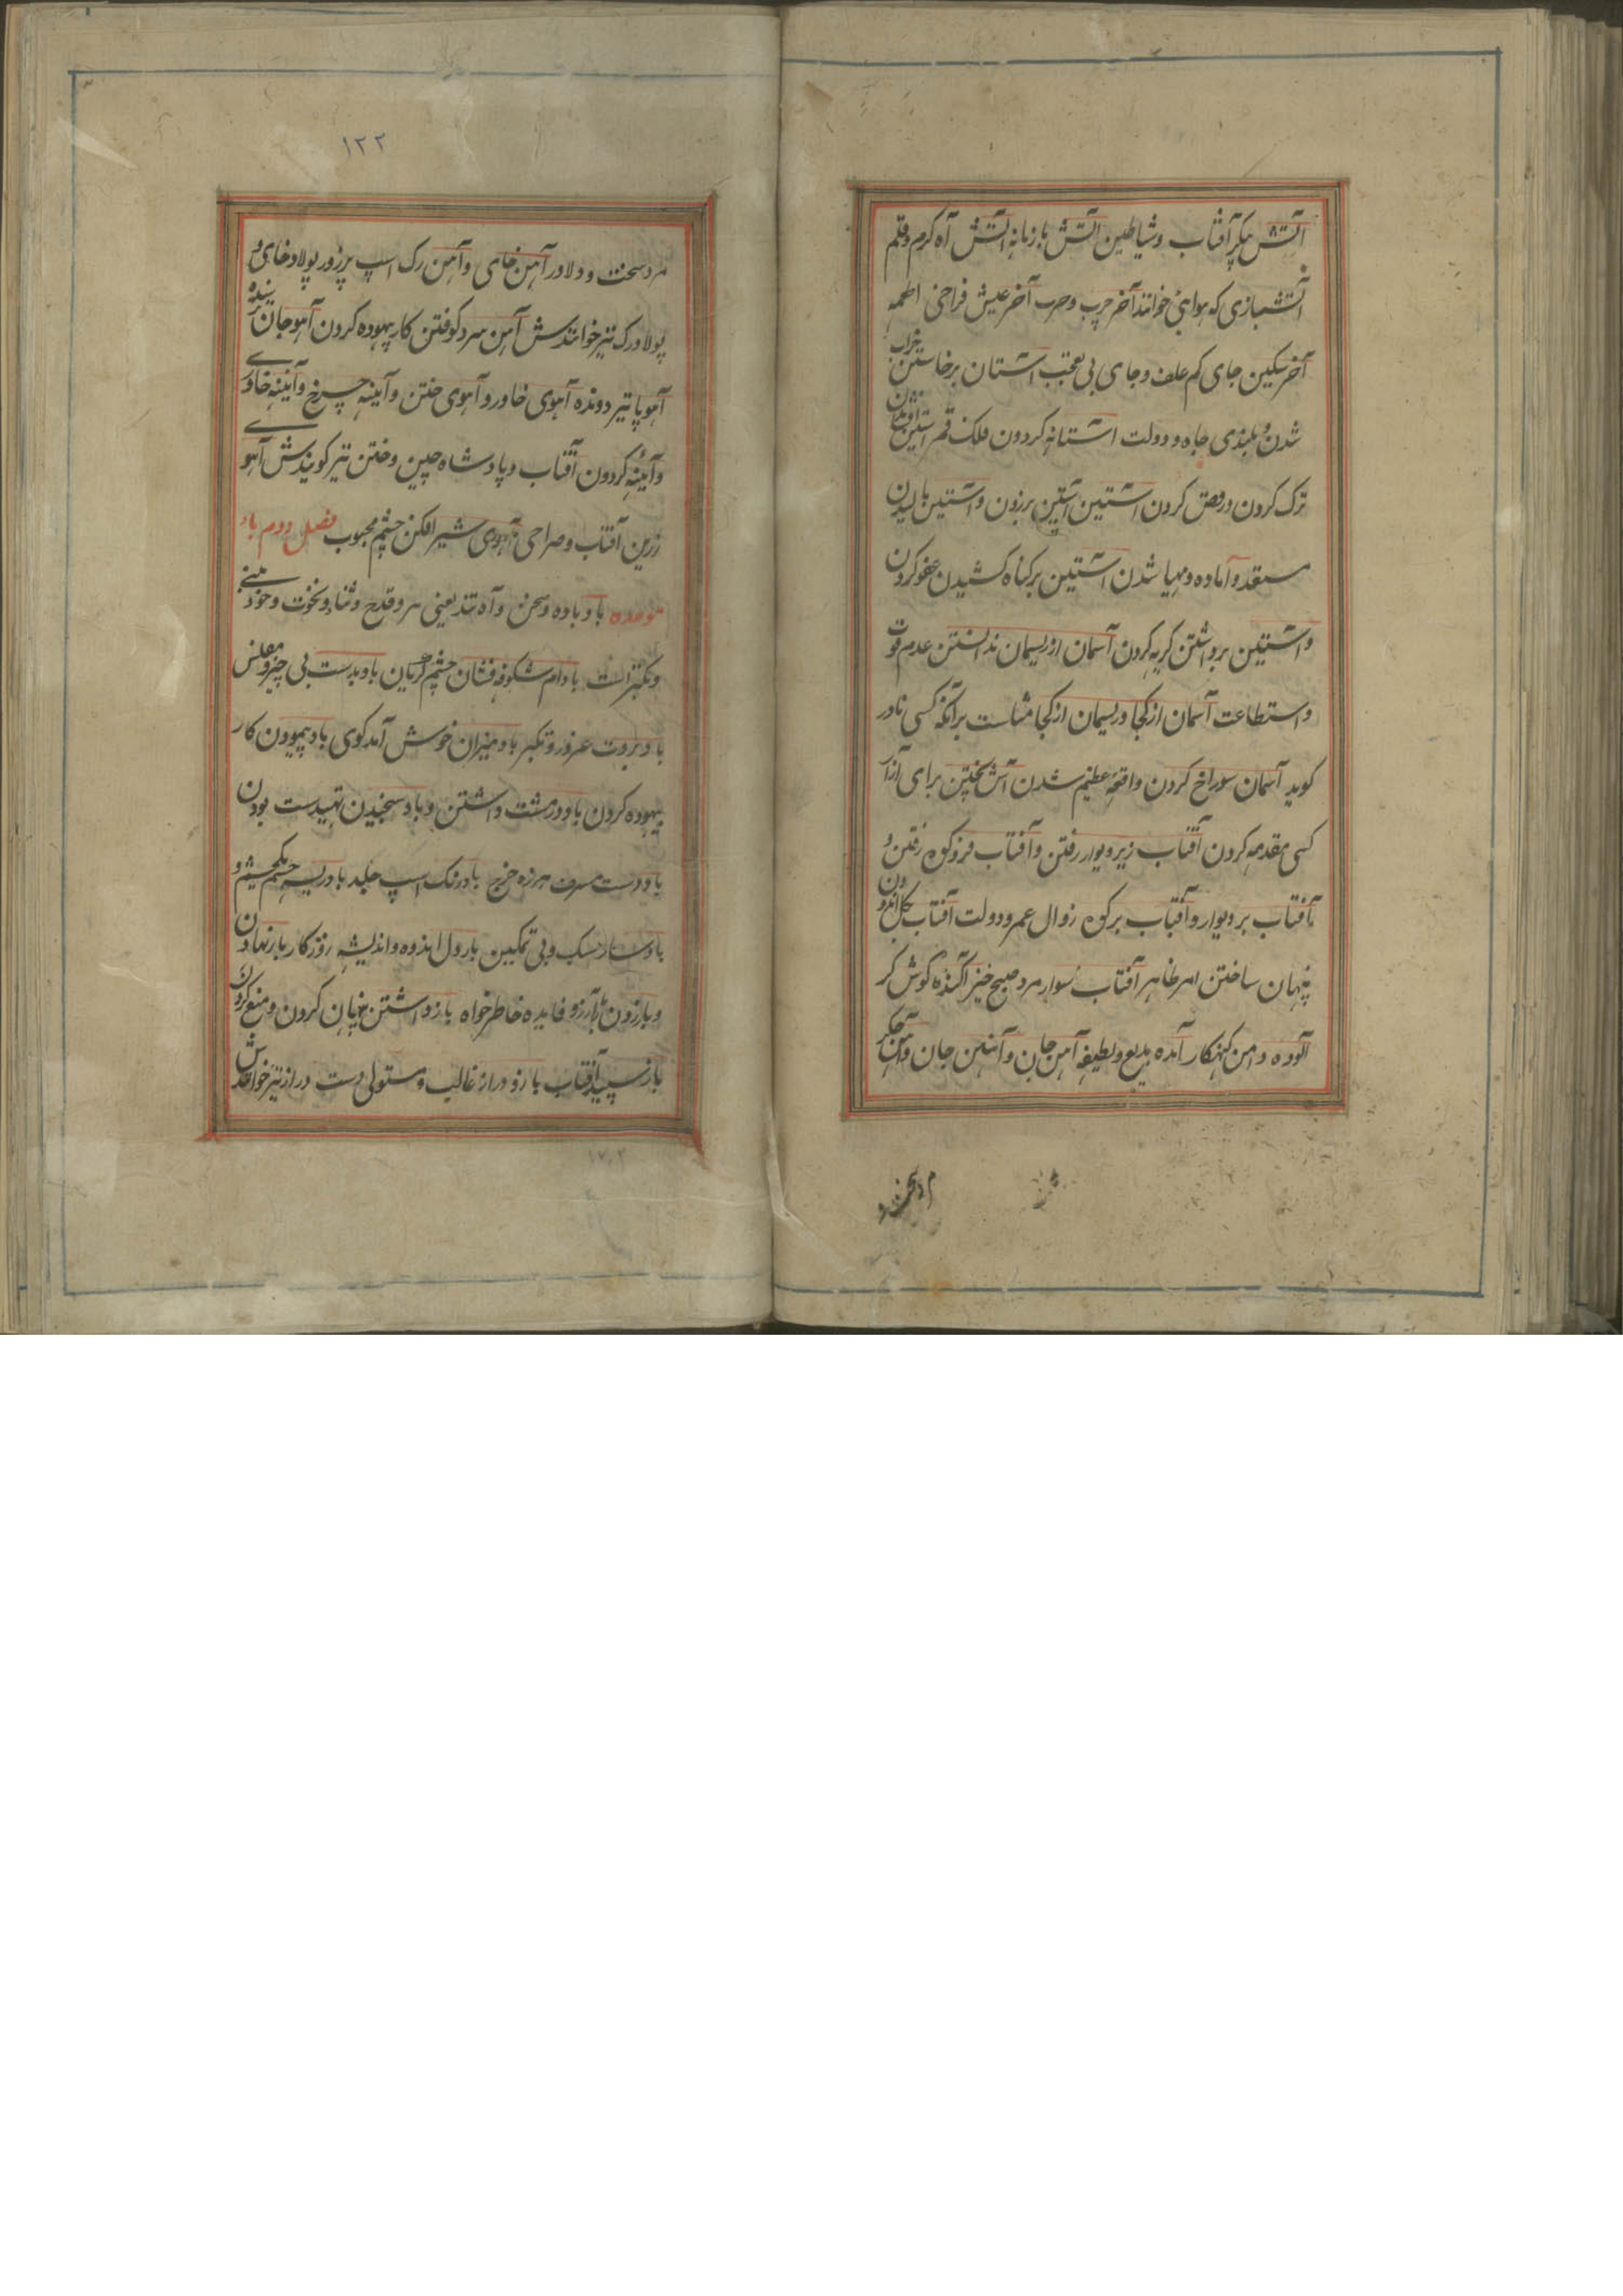 آتش پیکر آفتاب و شیاطین آتش با زبانه آتش آه کرم و قلم
آتشبازی که هوایی خوانند آخر چرب و حرب آخر عیش فراخی اطعمه
آخر سنکین جای کم علف و جای بی تعجب آستان برخاستن خراب
شدن و بلندی جاه و دولت آستانه کردون فلک قمر آستین افشاندن
ترک کردن و رقص کردن آستین برزدن و آستین بالیدن
مستعد و آماده و مهیا شدن آستین بر کناه کشیدن عفو کردن
و آستین برداشتن کریه کردن آسمان از ریسمان ندانستن عدم قوت
و استطاعت آسمان از کجا و ریسمان از کجا مثلست برآنکه کسی نادر
کوید آسمان سوراخ کردن واقعه عظیم شدن آش پختن برای آزار
کسی مقدمه کردن آفتاب زیر دیوار رفتن و آفتاب فرو کوه رفتن و
آفتاب بر دیوار و آفتاب بر کوه زوال عمر و دولت آفتاب بکل اندودن
پنهان ساختن امر ظاهر آفتاب سوار مرد صبح خیز آکنده کوش کر
آلوده دامن کنهکار آمده بدیع و لطیفه آهن جان و آهنین جان و آهن جکر
مرد سخت و
۱۲۲
مرد سخت و دلاور آهن خای و آهن رک اسپ پرزور پولاد خای و
پولاد رک نیز خوانندش آهن سرد کوفتن کار بیهوده کردن آهو جان
آهو پا تیز دونده آهوی خاور و آهوی ختن و آیینه چرخ و آیینه خاوری
و آیینه کردون آفتاب و پادشاه چین و ختن نیز کویندش آهوی
زرین آفتاب و صراحی آهوی شیر افکن چشم محبوب فصل دوم باء
موحده باد باده و سخن و آه تند یعنی سرد و قدح و ثنا و نخوت و خود بینی
و تکبر است بادام شکوفه فشان چشم کریان باد بدست بی چیز و مفلس
باد بروت غرور و تکبر باد میزان خوش آمد کوی باد پیمودن کار
بیهوده کردن باد در مشت داشتن و باد سنجیدن تهیدست بودن
باد دست مسرف هرزه خرج باد رنک اسپ جلد بادریسه چشم یکچشم و
باد سار سبک و بی تمکین بار دل اندوه و اندیشه روزکار بار نهادن
بازداشتن پنهان کردن و منع کردن
باز سپید آفتاب بازو دراز غالب و مستولی دست دراز نیز خوانندش
۱۷۰۲